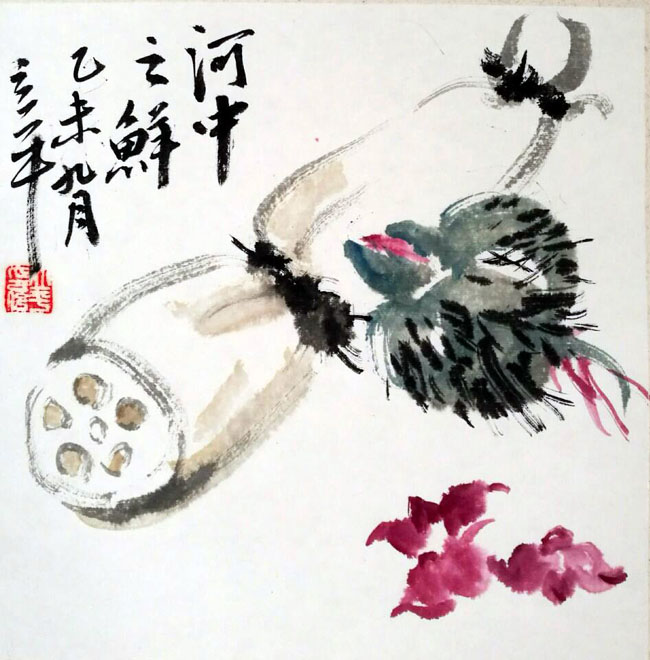 河中
之鮮
乙未九月
立平